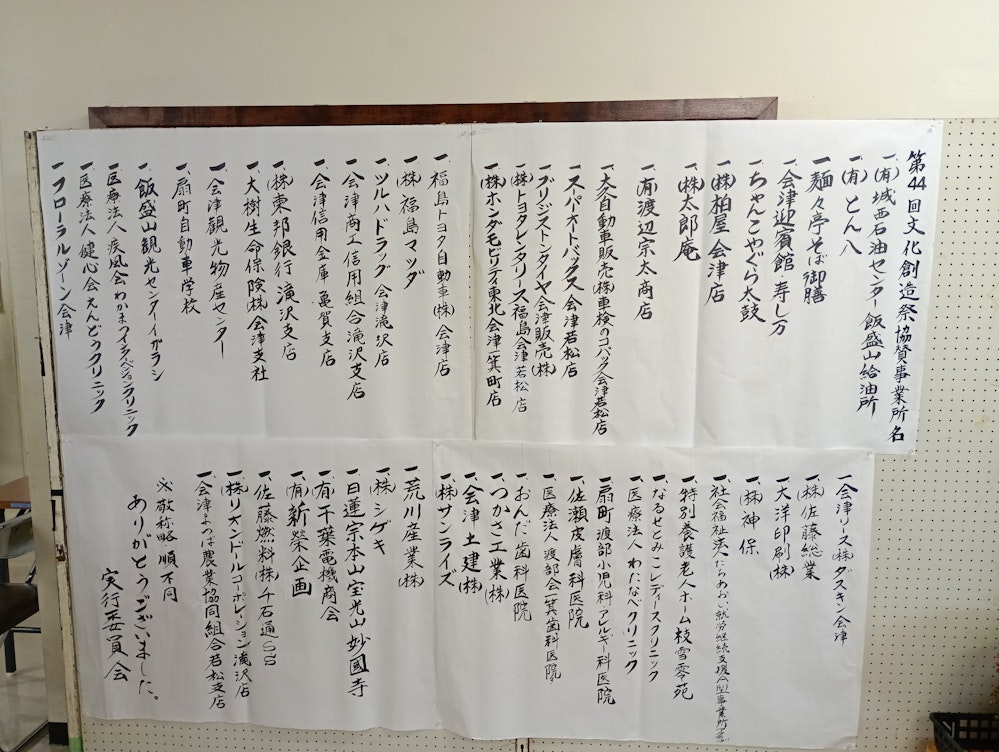 第44回文化創造祭協賛事業所名
一、(有)城西石油センター飯盛山給油所
一、(有)とん八
一、麺々亭そば御膳
一、会津迎賓館寿し万
一、ちゃんこやぐら太鼓
一、(株)柏屋会津店
一、(株)太郎庵
一、(有)渡辺宗太商店
一、大多自動車販売(株)車検のコバック会津若松店
一、スーパーオートバックス会津若松店
一、ブリジストンタイヤ会津販売(株)
一、(株)トヨタレンタリース福島会津若松店
一、(株)ホンダモビリティ東北会津一箕町店
一、福島トヨタ自動車(株)会津店
一、(株)福島マツダ
一、ツルハドラッグ会津滝沢店
一、会津商工信用組合滝沢支店
一、会津信用金庫亀賀支店
一、(株)東邦銀行滝沢支店
一、大樹生命保険(株)会津支社
一、会津観光物産センター
一、扇町自動車学校
一、飯盛山観光センターイガラシ
一、医療法人疾風会わかまつインターベンションクリニック
一、医療法人健心会えんどうクリニック
一、フローラルゾーン会津
一、会津リース(株)ダスキン会津
一、(株)佐藤総業
一、大洋印刷(株)
一、(株)神保
一、特別養護老人ホーム枝雪零苑
一、なるせとみこレディースクリニック
一、医療法人わたなべクリニック
一、扇町渡部小児科アレルギー科医院
一、佐瀬皮膚科医院
一、医療法人渡部会一箕歯科医院
一、おんだ歯科医院
一、つかさ工業(株)
一、会津土建(株)
一、(株)サンライズ
一、荒川産業(株)
一、(株)シゲキ
一、日蓮宗本山宝光山妙國寺
一、(有)千葉電機商会
一、(有)新榮企画
一、佐藤燃料(株)千石通りSS
一、(株)リオンドールコーポレーション滝沢店
一、会津よつば農業協同組合若松支店
※敬称略 順不同
ありがとうございました。
実行委員会